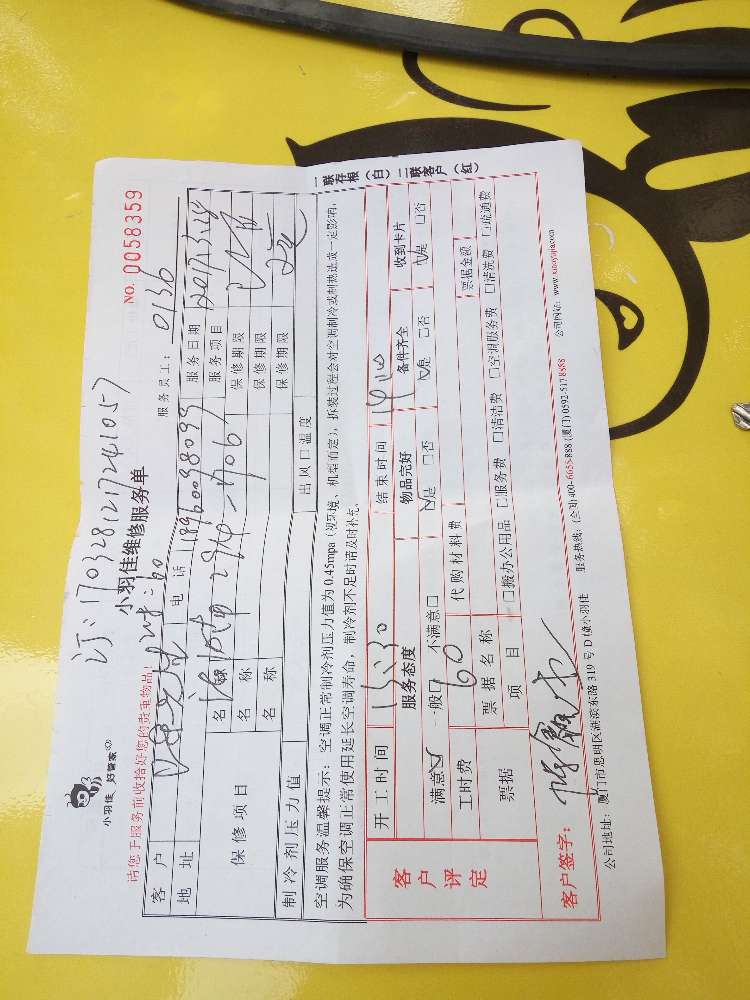 订:1703281217241057
小羽佳 好管家
小羽佳维修服务单
NO. 0058359
请您于服务前收拾好您的贵重物品!
服务员工: 0136
客户
电话 18960098099
服务日期
地址
服务项目
保修项目
名称
保修期限
名称
保修期限
名称
保修期限
制冷剂压力值
出风口温度
空调服务温馨提示:空调正常制冷剂压力值为0.45mpa(视环境、机型而定),拆装过程会对空调制冷或制热造成一定影响,
为确保空调正常使用延长空调寿命,制冷剂不足时请及时补充。
一联存根(白)二联客户(红)
客户评定
开工时间
结束时间
服务态度
物品完好
备件齐全
收到卡片
满意☑ 一般□ 不满意□
☑是 □否
☑是 □否
☑是 □否
工时费 60
代购材料费
票据金额
票据
票据名称
项目
□搬办公用品 □服务费 □清洁费 □空调服务费 □清洗费 □疏通费
客户签字:
公司地址:厦门市思明区湖滨东路319号D幢小羽佳
服务热线:(全国)400-6655-888 (厦门)0592-5178888
公司网站:www.xiaoyujia.com